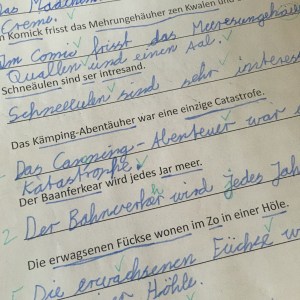 Das Mädchen
Creme.
Komick frisst das Mehrungehäuher zen Kwalen und
Im Comic frisst das Meeresungeheuer
Quallen und einen Aal.
Schneäulen sind ser intresand.
Schneeeulen sind sehr interess
Das Kämping-Abentäuher war eine einzige Catastrofe.
Das Camping-Abenteuer war
Katastrophe.
Der Baanferkear wird jedes Jar meer.
2 Der Bahnverkehr wird jedes Jah
Die erwagsenen Fückse wonen im Zo in einer Höle.
Die erwachsenen Füchse w
5 Höhle.